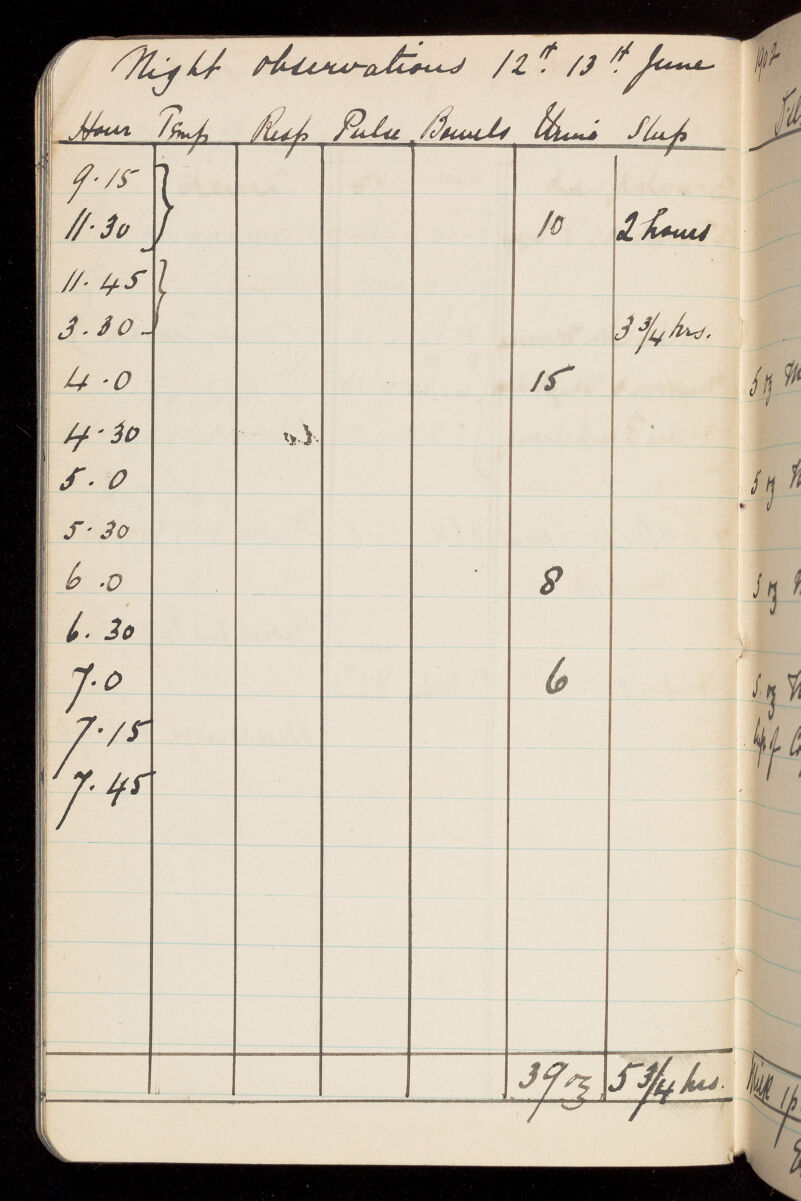 Night observations 12th. 13th. June
Hour Temp Resp Pulse Bowels Urine Sleep
9.15
11.30 10 2 hours
11.45
3.30 3 3/4 hrs.
4.0 15
4.30
5.0
5.30
6.0 8
6.30
7.0 6
7.15
7.45
39 oz 5 3/4 hrs.
1902
5 oz
5 oz
5 oz
5 oz
Cup of
Milk 1p